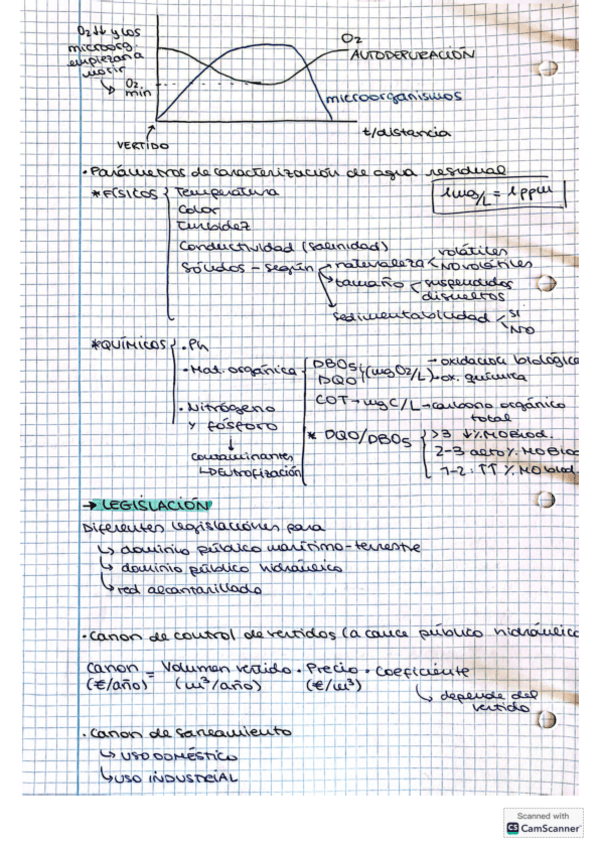 O2 ↓↓ y los
microorg.
empiezan a
morir
O2
min
O2
AUTODEPURACIÓN
microorganismos
t/distancia
VERTIDO
· Parámetros de caracterización de agua residual
1mg/L = 1ppm
* FÍSICOS { Temperatura
Color
Turbidez
Conductividad (salinidad)
Sólidos - según → naturaleza < volátiles
NO volátiles
→ tamaño < suspendidos
disueltos
→ sedimentabilidad < SÍ
NO
* QUÍMICOS { · Ph
· Mat. orgánica { DBO5 } (mg O2/L) → oxidación biológica
DQO → ox. química
COT → mg C/L → carbono orgánico
total
· Nitrógeno
y fósforo
↓
contaminantes
↳ eutrofización
* DQO/DBO5 { >3 ↓% MO Biod.
2-3 % MO Biod
1-2: ↑↑ % MO biod
→ LEGISLACIÓN
Diferentes legislaciones para
↳ dominio público marítimo-terrestre
↳ dominio público hidráulico
↳ red alcantarillado
· Canon de control de vertidos (a cauce público hidráulico
Canon = Volumen vertido · Precio · Coeficiente
(€/año) (m³/año) (€/m³)
↳ depende del
vertido
· Canon de saneamiento
↳ USO DOMÉSTICO
↳ USO INDUSTRIAL
Scanned with
CS CamScanner